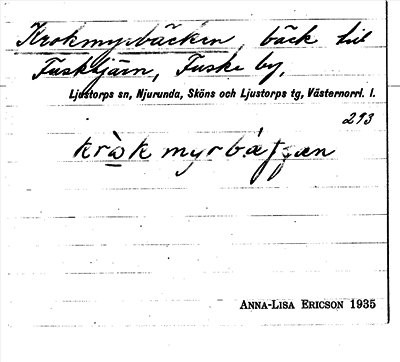 Krokmyrbäcken, bäck till
Fusktjärn, Fuske by,
Ljustorps sn, Njurunda, Sköns och Ljustorps tg, Västernorrl. l.
293
Anna-Lisa Ericson 1935